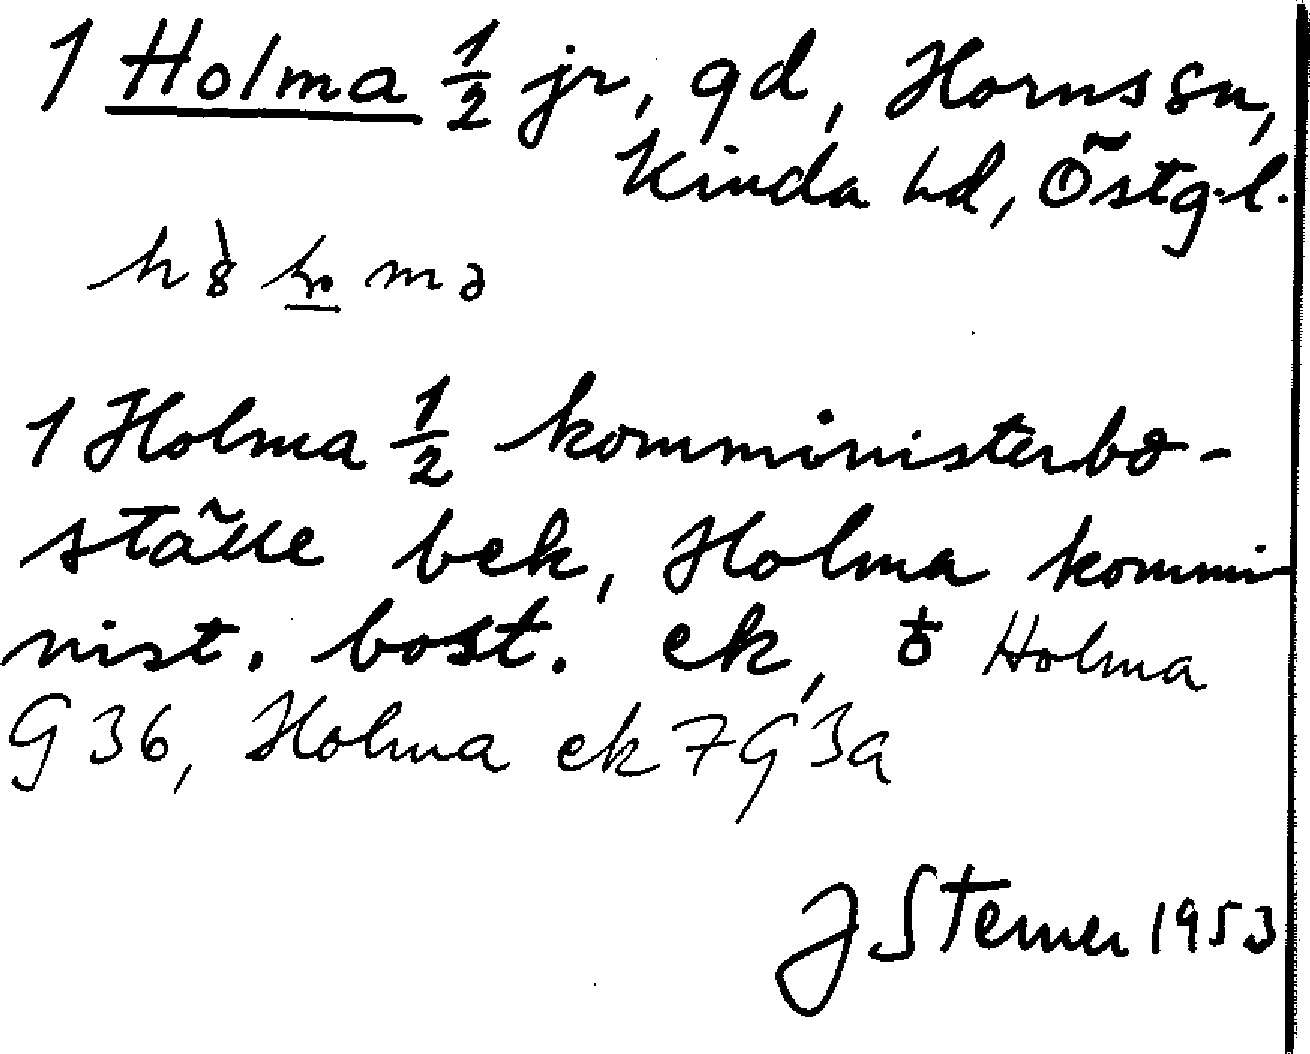 1 Holma ½ jr, gd, Horns sn,
Kinda hd, Östg.l.
1 Holma ½ komministerbo-
ställe bek, Holma kommi-
nist. bost. ek, Holma
G 36, Holma ek 7 G 3a
J Sterner 1953